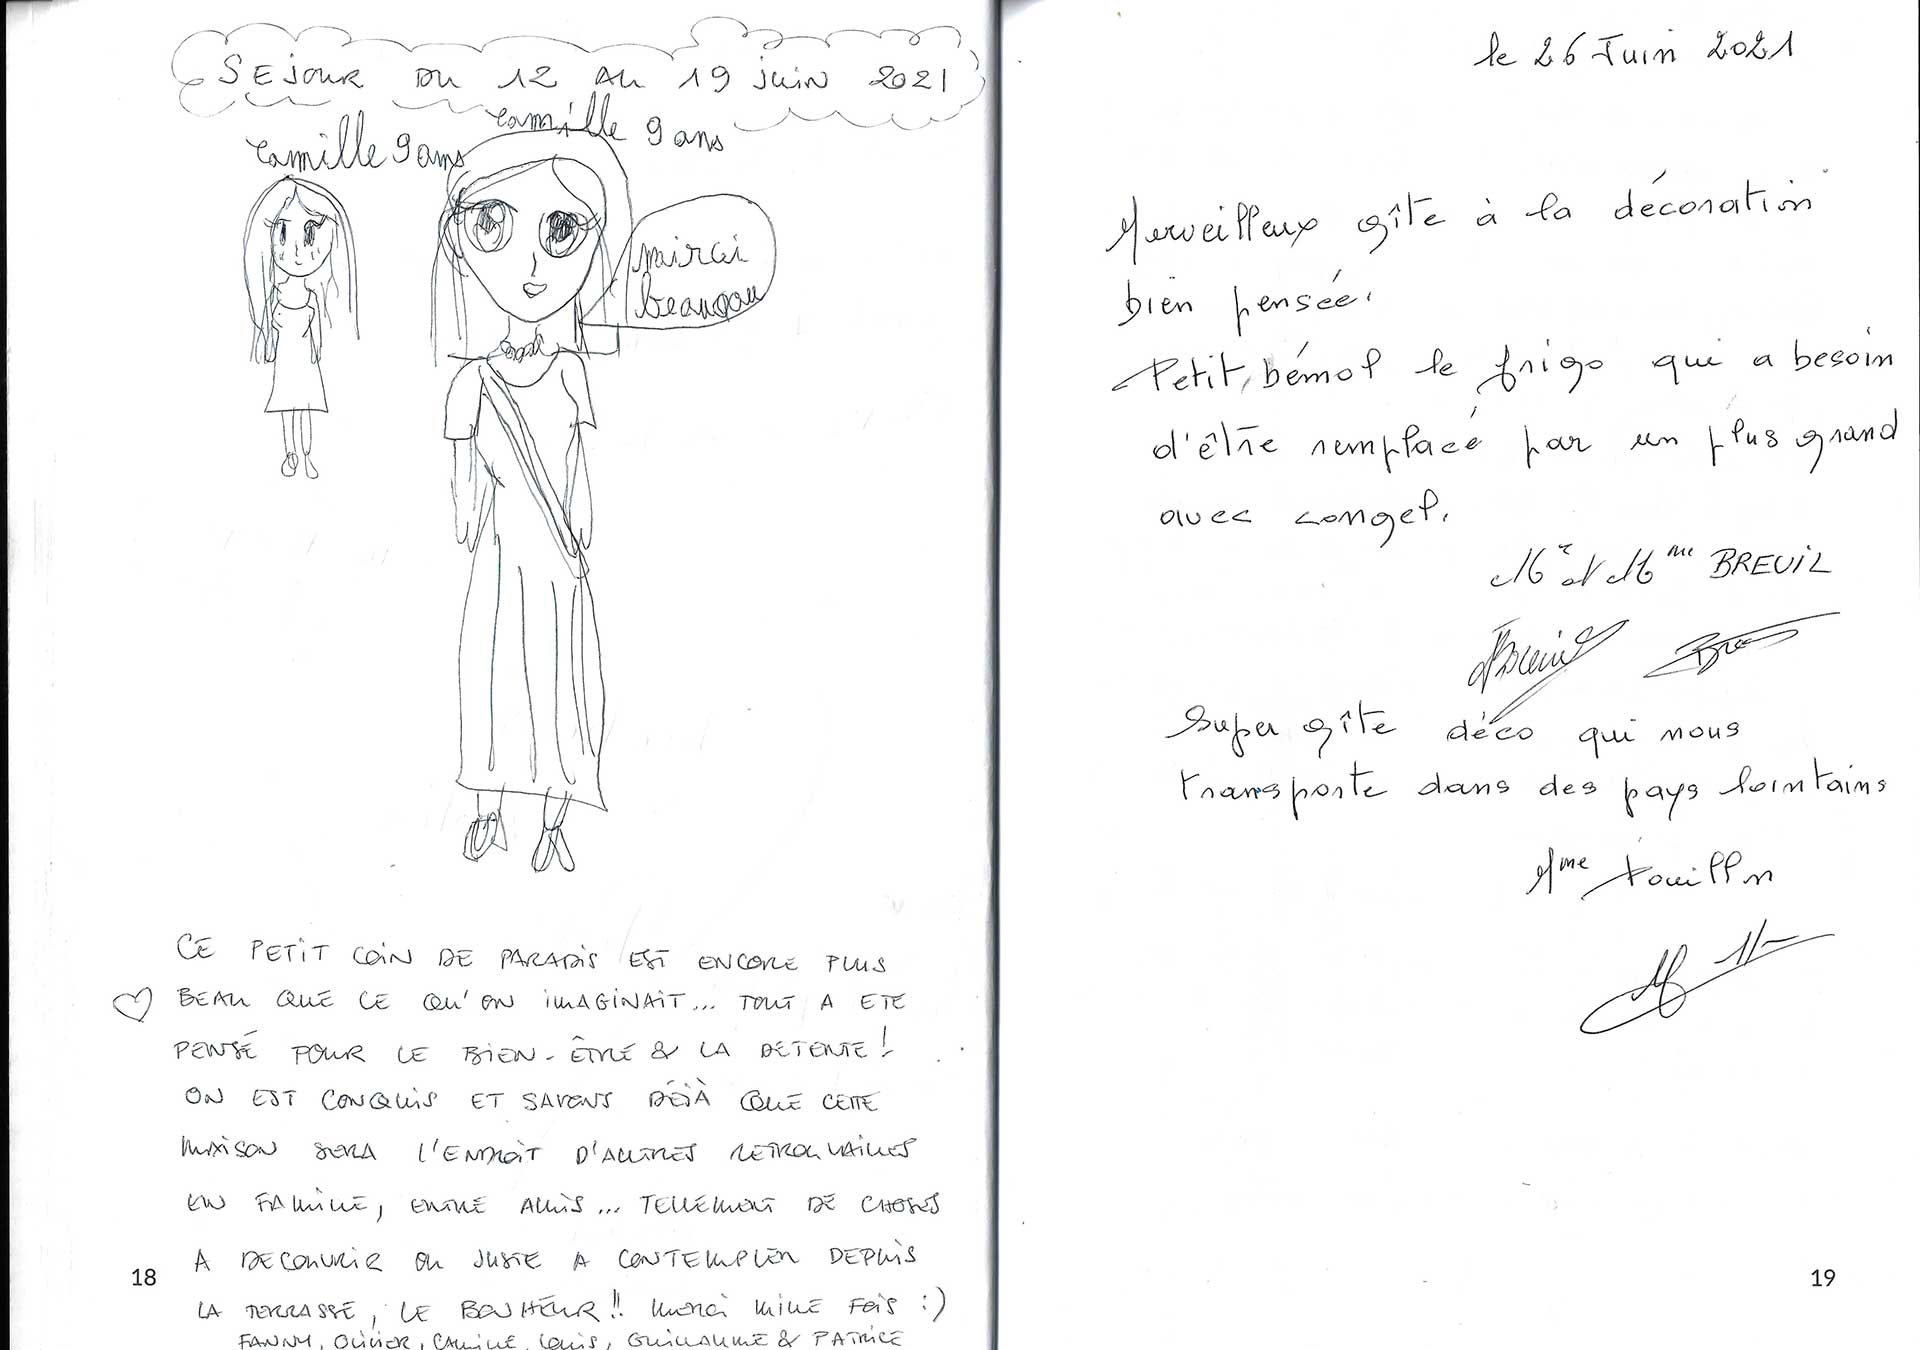 SEJOUR DU 12 AU 19 juin 2021
camille 9 ans
camille 9 ans
mirci
beaucou
CE PETIT COIN DE PARADIS EST ENCORE PLUS
BEAU QUE CE QU'ON IMAGINAIT... TOUT A ETE
PENSÉ POUR LE BIEN-ÊTRE & LA DETENTE !
ON EST CONQUIS ET SAVONS DÉJÀ QUE CETTE
MAISON SERA L'ENDROIT D'AUTRES RETROUVAILLES
EN FAMILLE, ENTRE AMIS... TELLEMENT DE CHOSES
A DECOUVRIR OU JUSTE A CONTEMPLER DEPUIS
LA TERRASSE, LE BONHEUR !! MERCI MILLE FOIS :)
FANNY, OLIVIER, CAMILLE, LOUIS, GUILLAUME & PATRICE
18
le 26 Juin 2021
Merveilleux gîte à la décoration
bien pensée.
Petit bémol le frigo qui a besoin
d'être remplacé par un plus grand
avec congel.
Mr et Mme BREUIL
Super gîte déco qui nous
transporte dans des pays lointains
Mme
19